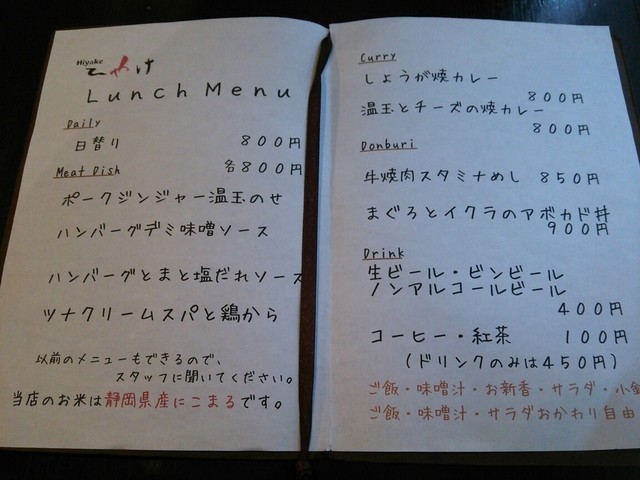 Hiyake
ひやけ
Lunch Menu
Daily
日替り 800円
Meat Dish 各800円
ポークジンジャー温玉のせ
ハンバーグデミ味噌ソース
ハンバーグとまと塩だれソース
ツナクリームスパと鶏から
以前のメニューもできるので、
スタッフに聞いてください。
当店のお米は静岡県産にこまるです。
Curry
しょうが焼カレー
800円
温玉とチーズの焼カレー
800円
Donburi
牛焼肉スタミナめし 850円
まぐろとイクラのアボカド丼
900円
Drink
生ビール・ビンビール
ノンアルコールビール
400円
コーヒー・紅茶 100円
(ドリンクのみは450円)
ご飯・味噌汁・お新香・サラダ・小鉢
ご飯・味噌汁・サラダおかわり自由